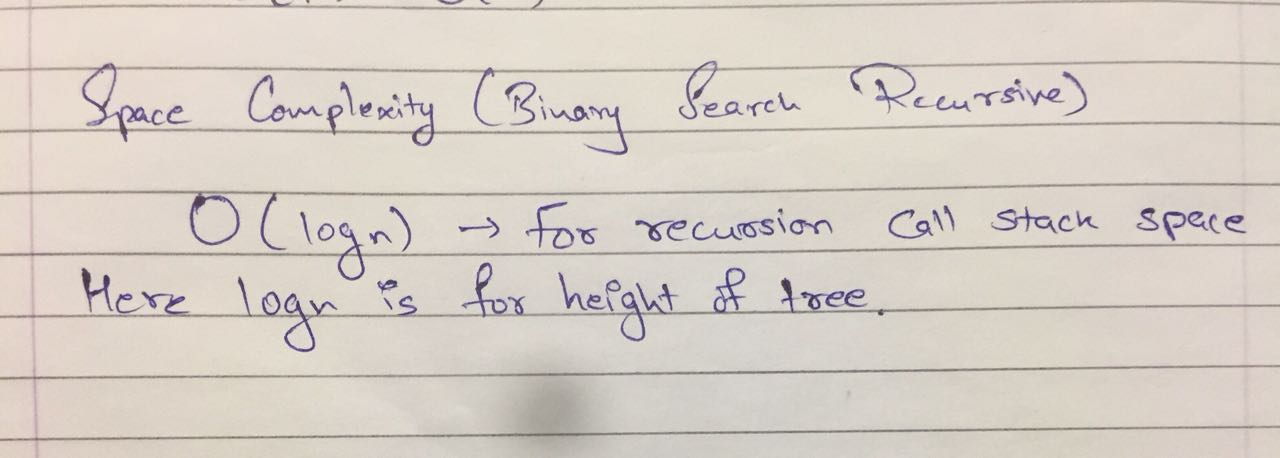 Space Complexity (Binary Search Recursive)
O(logn) → for recursion call stack space
Here logn is for height of tree.